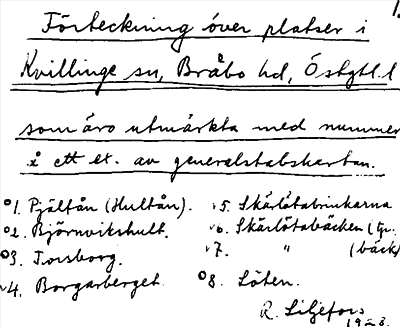 1.
Förteckning över platser i
Kvillinge sn, Bråbo hd, Östgtl. l
som äro utmärkta med nummer
å ett ex. av generalstabskartan.
1. Pjältån (Hultån).
2. Björnvikshult.
3. Torsborg.
4. Borgarberget.
5. Skärlötabrinkarna
6. Skärlötabäcken (tjr.
7. " (bäck
8. Löten.
R. Liljefors